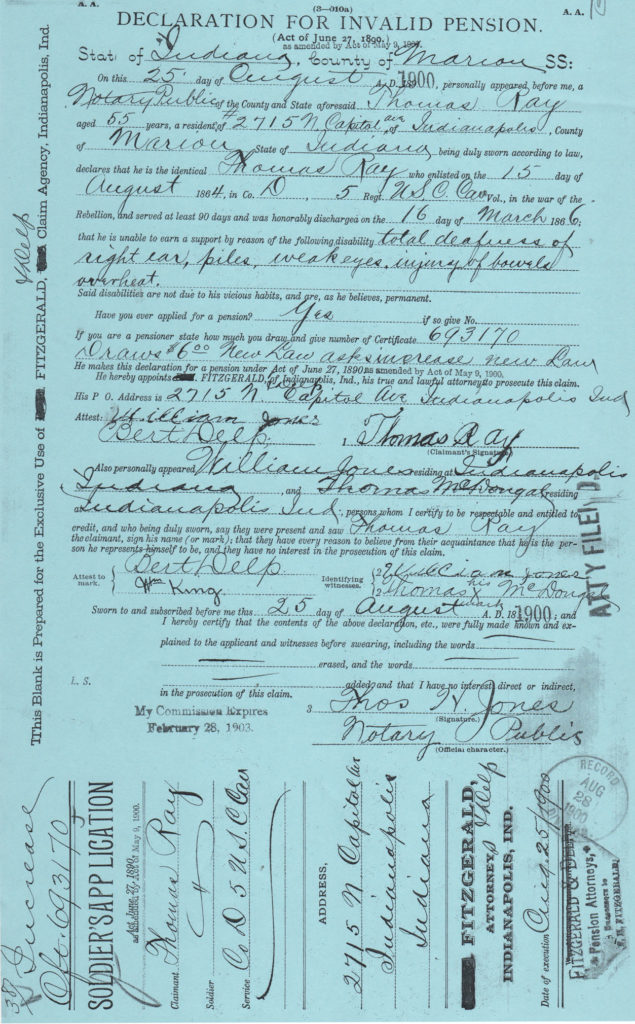 A. A.
(3—010a)
A. A.
DECLARATION FOR INVALID PENSION.
(Act of June 27, 1890.)
as amended by Act of May 9, 1900.
State of Indiana, County of Marion SS:
On this 25 day of August A. D. 1900, personally appeared before me, a
Notary Public of the County and State aforesaid Thomas Ray
aged 55 years, a resident of #2715 N. Capitol ave of Indianapolis, County
of Marion State of Indiana being duly sworn according to law,
declares that he is the identical Thomas Ray who enlisted on the 15 day of
August 1864, in Co. D, 5 Regt. U.S.C. Cav Vol., in the war of the
Rebellion, and served at least 90 days and was honorably discharged on the 16 day of March 1866;
that he is unable to earn a support by reason of the following disability total deafness of
right ear, piles, weak eyes, injury of bowels
overheat.
Said disabilities are not due to his vicious habits, and are, as he believes, permanent.
Have you ever applied for a pension? Yes if so give No.
If you are a pensioner state how much you draw and give number of Certificate 693170
Draws $6.00 New Law asks increase new Law
He makes this declaration for a pension under Act of June 27, 1890 as amended by Act of May 9, 1900.
He hereby appoints FITZGERALD, & Delp of Indianapolis, Ind., his true and lawful attorneys to prosecute this claim.
His P. O. Address is 2715 N Capitol Ave Indianapolis Ind
Attest: William Jones
Bert Delp. 1 Thomas Ray
(Claimant's Signature)
Also personally appeared William Jones residing at Indianapolis
Indiana, and Thomas McDongal residing
Indianapolis Ind, persons whom I certify to be respectable and entitled to
credit, and who being duly sworn, say they were present and saw Thomas Ray
the claimant, sign his name (or mark); that they have every reason to believe from their acquaintance that he is the per-
son he represents himself to be, and they have no interest in the prosecution of this claim.
Attest to mark. { Bert Delp
Wm King. }
Identifying witnesses. { 2 William Jones
his
2 Thomas X McDongal
mark
Sworn to and subscribed before me this 25 day of August A. D. 1900; and
I hereby certify that the contents of the above declaration, etc., were fully made known and ex-
plained to the applicant and witnesses before swearing, including the words
erased, and the words
L. S.
added; and that I have no interest direct or indirect,
in the prosecution of this claim.
My Commission Expires
February 28, 1903.
3 Thos N. Jones
(Signature.)
Notary Public
(Official character.)
This Blank is Prepared for the Exclusive Use of FITZGERALD, & Delp Claim Agency, Indianapolis, Ind.
ATTY FILED
Increase
Cft. 693170
SOLDIER'S APPLICATION
Act June 27, 1890.
as amended by Act of May 9, 1900.
Claimant Thomas Ray
Soldier "
Service Co D 5 U.S.C. Cav
ADDRESS,
2715 N Capitol av
Indianapolis
Indiana
FITZGERALD, & Delp
ATTORNEYS
INDIANAPOLIS, IND.
Date of execution Aug. 25/1900
FITZGERALD & DELP
Pension Attorneys,
Successors to
FITZGERALD.
RECORD
AUG
28
1900